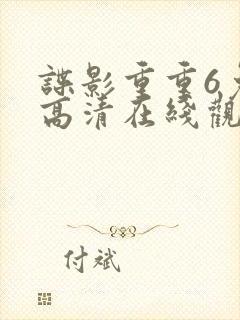 諜影重重6
高清在綫觀
付斌